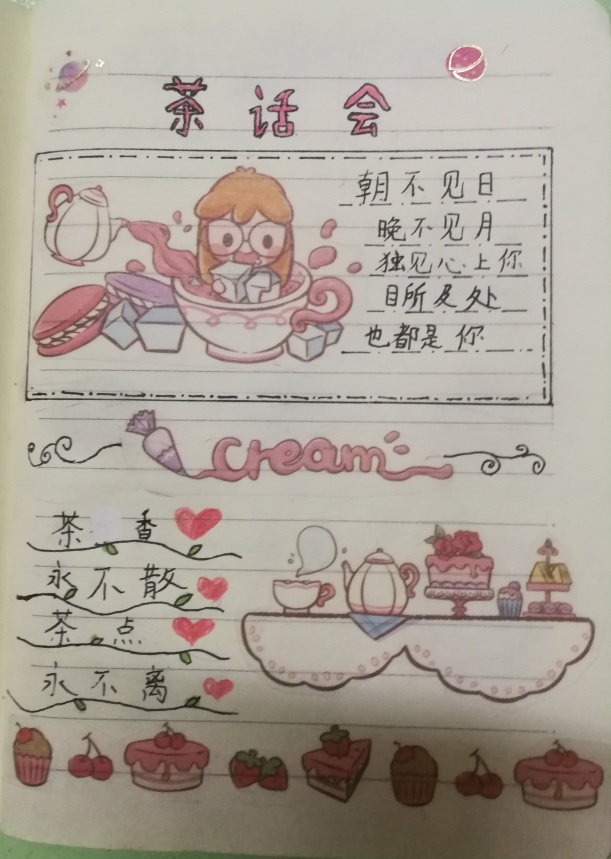 茶话会
朝不见日
晚不见月
独见心上你
目所及处
也都是你
cream
茶香
永不散
茶点
永不离